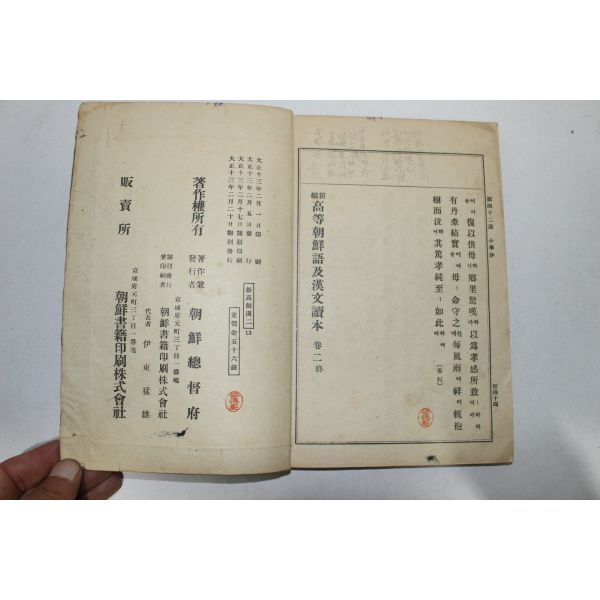 第四十二課 小學抄
百四十四
復以供母하니鄉里驚嘆하야以爲孝感所致ㅣ라하더라
有丹柰結實이어늘母ㅣ命守之한대每風雨에祥이輒抱
樹而泣하니其篤孝純至ㅣ如此하더라
新編高等朝鮮語及漢文讀本 卷二終
大正十三年二月一日印刷
大正十三年二月五日發行
大正十三年二月十七日翻刻印刷
大正十三年二月二十日翻刻發行
新高鮮漢二
定價金五十六錢
著作權所有
著作兼發行者 朝鮮總督府
京城府元町三丁目一番地
翻刻發行兼印刷者 朝鮮書籍印刷株式會社
代表者 伊東猛雄
京城府元町三丁目一番地
販賣所 朝鮮書籍印刷株式會社